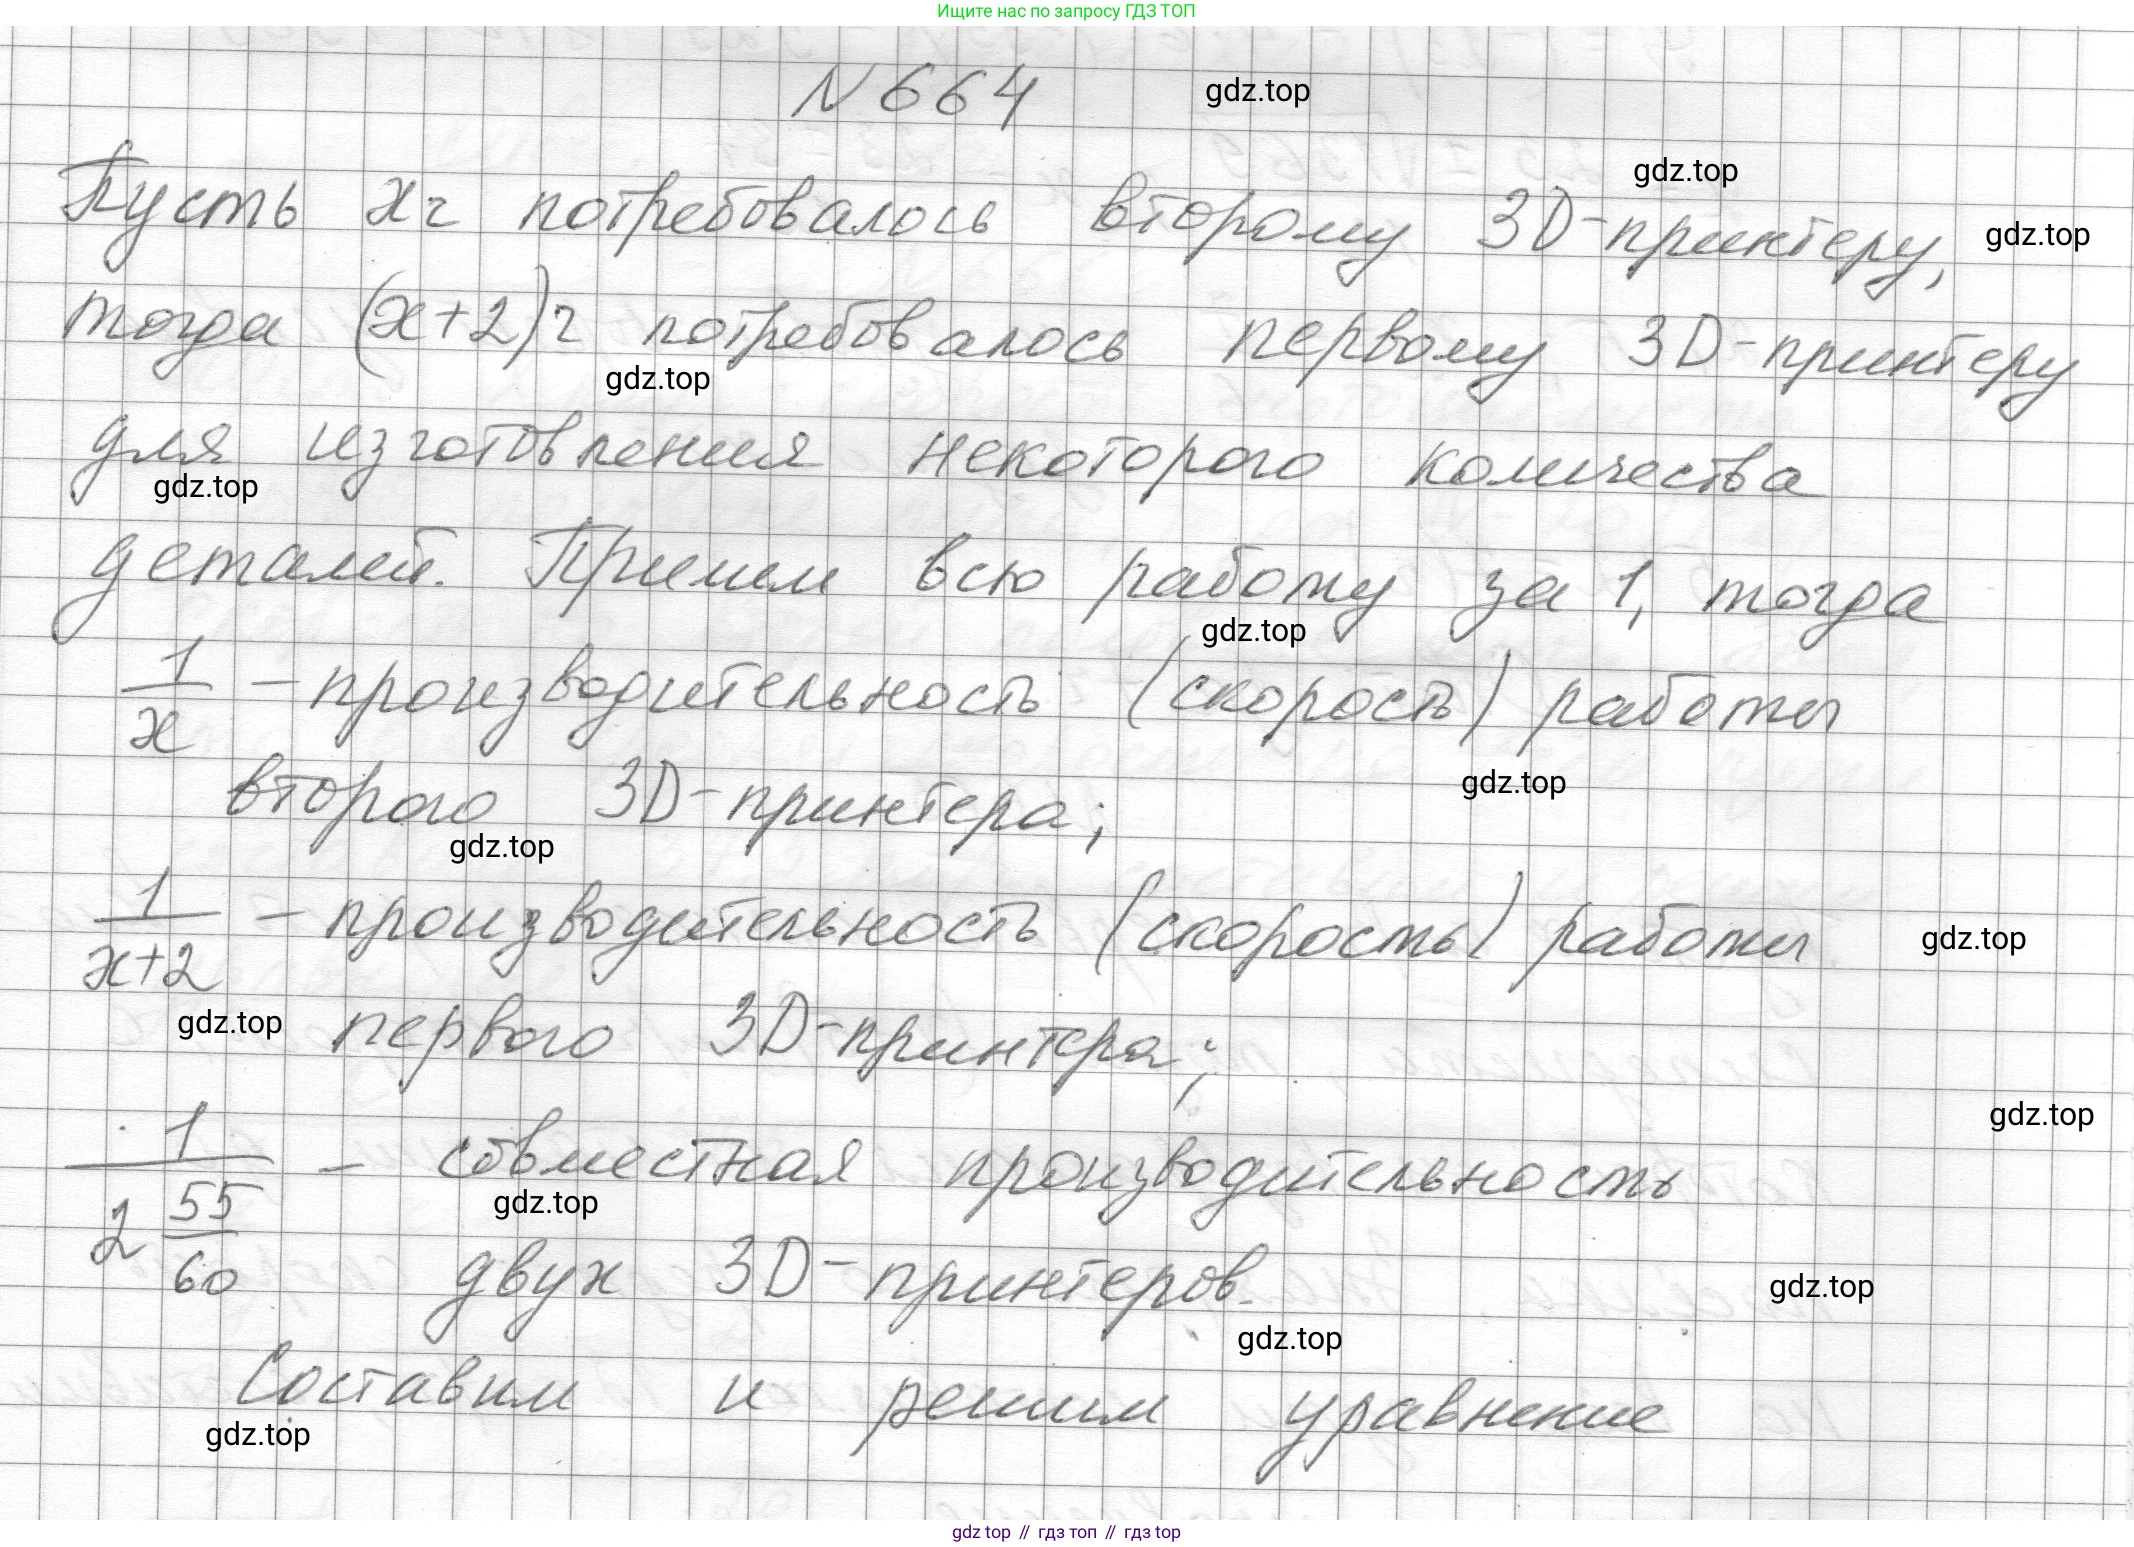 Ищите нас по запросу ГДЗ ТОП
N 664
gdz.top
gdz.top
Пусть xч потребовалось второму 3D-принтеру,
gdz.top
тогда (x+2)ч потребовалось первому 3D-принтеру
gdz.top
для изготовления некоторого количества
gdz.top
деталей. Примем всю работу за 1, тогда
gdz.top
1/x – производительность (скорость) работы
gdz.top
второго 3D-принтера;
gdz.top
1/(x+2) – производительность (скорость) работы
gdz.top
gdz.top
первого 3D-принтера;
gdz.top
1/(2 55/60) – совместная производительность
gdz.top
двух 3D-принтеров.
gdz.top
gdz.top
Составим и решим уравнение
gdz.top
gdz top // гдз топ // гдз top